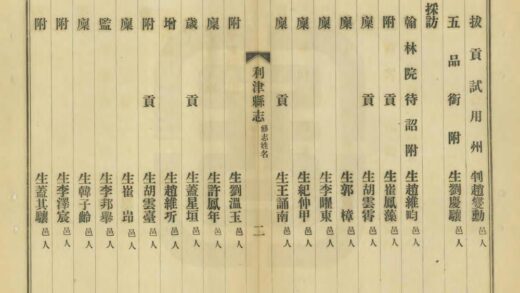 拔貢試用州判趙燮勳邑人
五品銜附生劉慶驤邑人
採訪
翰林院待詔附生趙維畇邑人
附貢生崔鳳藻邑人
廩貢生胡雲霱邑人
廩生郭樟邑人
廩生李曜東邑人
廩生紀仲甲邑人
廩貢生王誦南邑人
利津縣志 修志姓名 二
附生劉溫玉邑人
廩生許鳳年邑人
歲貢生蓋星垣邑人
增生趙維圻邑人
附貢生胡雲臺邑人
廩生崔邑人
監生李邦舉邑人
廩生韓子齡邑人
附生李澤宸邑人
附生蓋其驤邑人